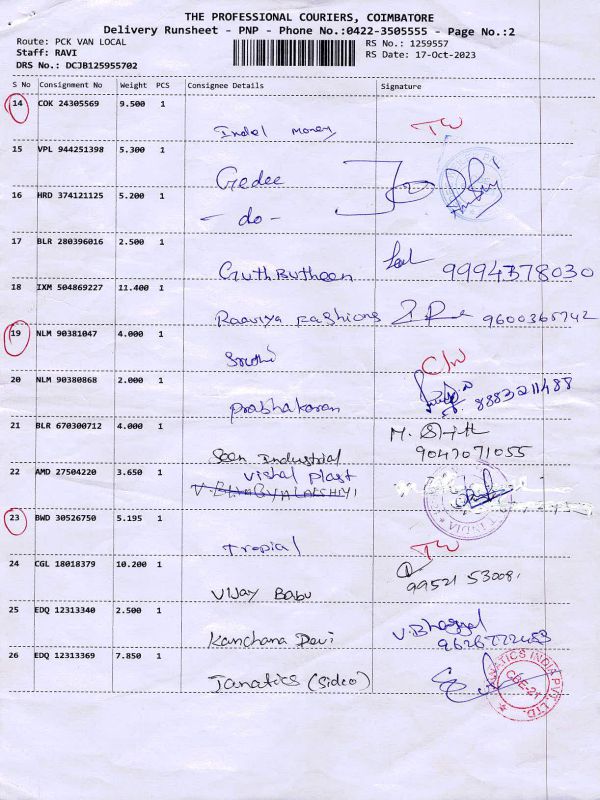 THE PROFESSIONAL COURIERS, COIMBATORE
Delivery Runsheet - PNP - Phone No.:0422-3505555 - Page No.:2
Route: PCK VAN LOCAL
Staff: RAVI
DRS No.: DCJB125955702
RS No.: 1259557
RS Date: 17-Oct-2023
S No Consignment No Weight PCS Consignee Details Signature
14 COK 24305569 9.500 1
Indel money TW
15 VPL 944251398 5.300 1
Gedee
16 HRD 374121125 5.200 1
- do -
17 BLR 280396016 2.500 1
9994378030
18 IXM 504869227 11.400 1
Raaviya Fashions 9600365742
19 NLM 90381047 4.000 1
Sruthi C/W
20 NLM 90380868 2.000 1
Prabhakaran 8883211488
21 BLR 670300712 4.000 1
Seen Industrial 9047071055
22 AMD 27504220 3.650 1
Vishal Plast
23 BWD 30526750 5.195 1
Tropial TW
24 CGL 18018379 10.200 1
Vijay Babu 99521 53008
25 EDQ 12313340 2.500 1
Kanchana Devi
26 EDQ 12313369 7.850 1
Janatics (Sidco)
ANATICS INDIA PVT. LTD.
CBE-21